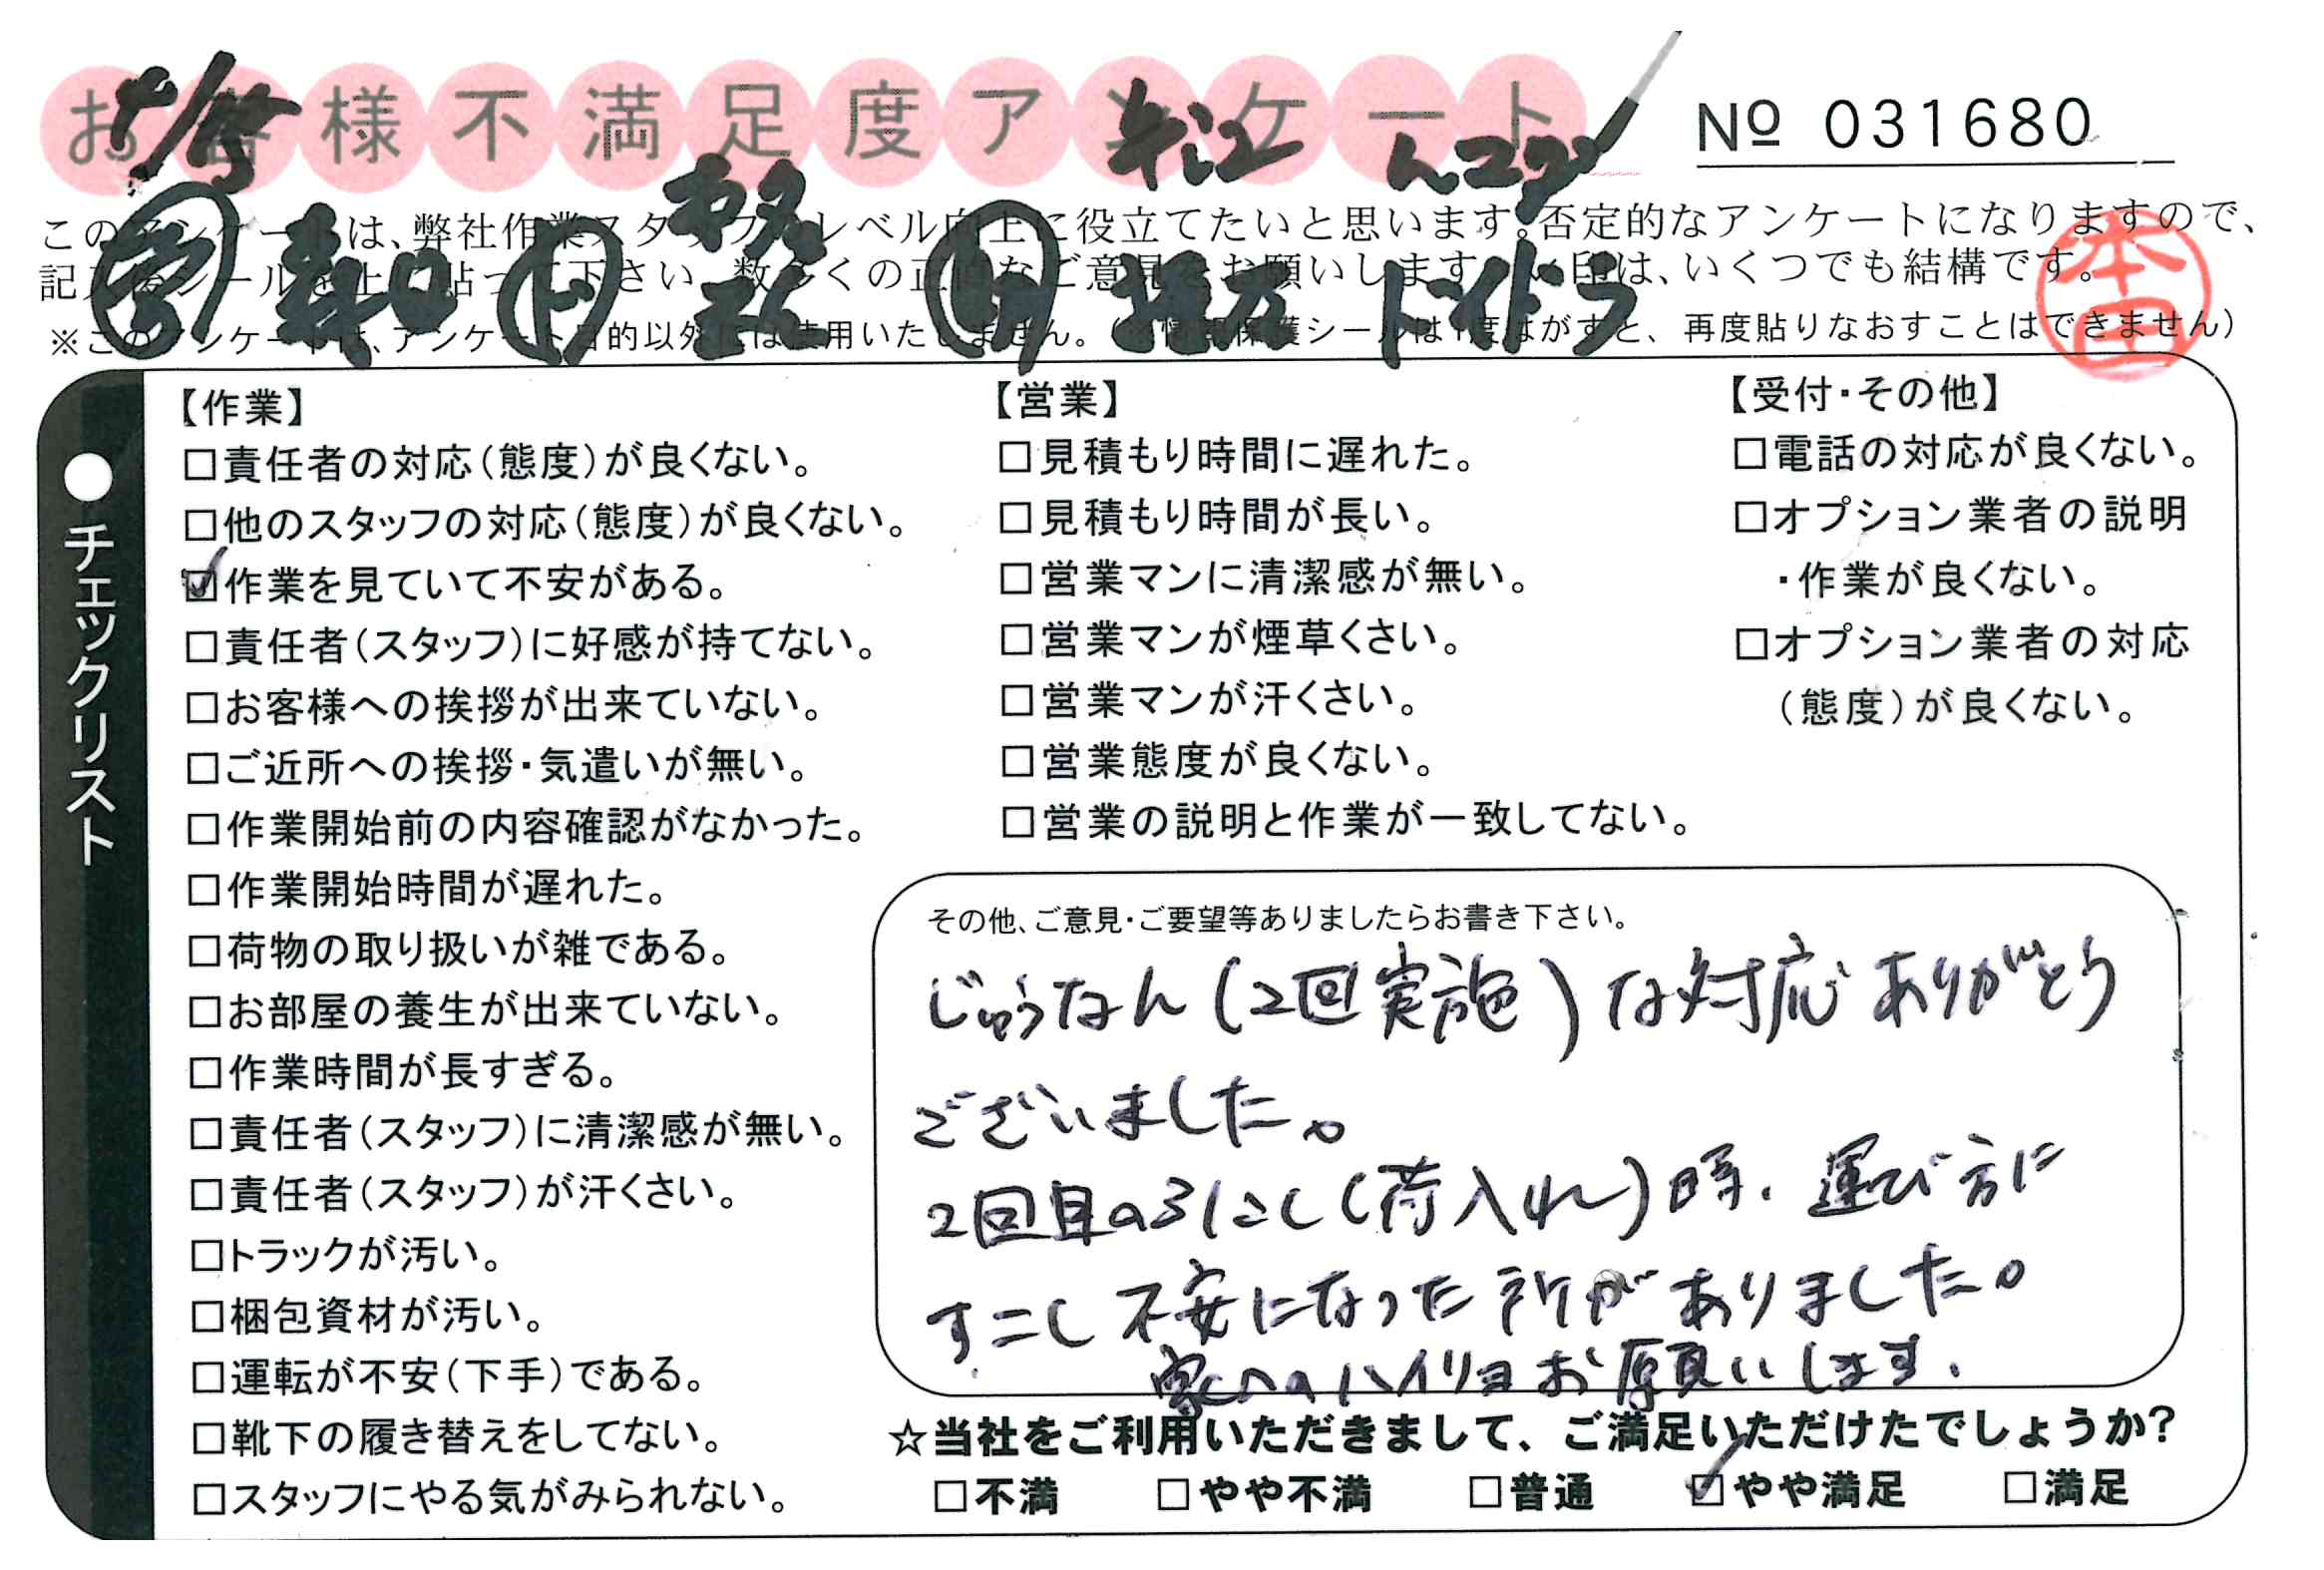 お客様不満足度アンケート
№ 031680
このアンケートは、弊社作業スタッフのレベル向上に役立てたいと思います。否定的なアンケートになりますので、
記入後シールを上に貼って下さい。数多くの正直なご意見をお願いします。レ印は、いくつでも結構です。
※このアンケートは、アンケート目的以外には使用いたしません。(※情報保護シールは1度はがすと、再度貼りなおすことはできません)
本田
●チェックリスト
【作業】
□責任者の対応(態度)が良くない。
□他のスタッフの対応(態度)が良くない。
☑作業を見ていて不安がある。
□責任者(スタッフ)に好感が持てない。
□お客様への挨拶が出来ていない。
□ご近所への挨拶・気遣いが無い。
□作業開始前の内容確認がなかった。
□作業開始時間が遅れた。
□荷物の取り扱いが雑である。
□お部屋の養生が出来ていない。
□作業時間が長すぎる。
□責任者(スタッフ)に清潔感が無い。
□責任者(スタッフ)が汗くさい。
□トラックが汚い。
□梱包資材が汚い。
□運転が不安(下手)である。
□靴下の履き替えをしてない。
□スタッフにやる気がみられない。
【営業】
□見積もり時間に遅れた。
□見積もり時間が長い。
□営業マンに清潔感が無い。
□営業マンが煙草くさい。
□営業マンが汗くさい。
□営業態度が良くない。
□営業の説明と作業が一致してない。
【受付・その他】
□電話の対応が良くない。
□オプション業者の説明
・作業が良くない。
□オプション業者の対応
(態度)が良くない。
その他、ご意見・ご要望等ありましたらお書き下さい。
じゅうなん(2回実施)な対応ありがとう
ございました。
2回目のひにこし(荷入れ)時、運び方に
すこし不安になった所がありました。
家へのハイリョお願いします。
☆当社をご利用いただきまして、ご満足いただけたでしょうか?
□不満 □やや不満 □普通 ☑やや満足 □満足